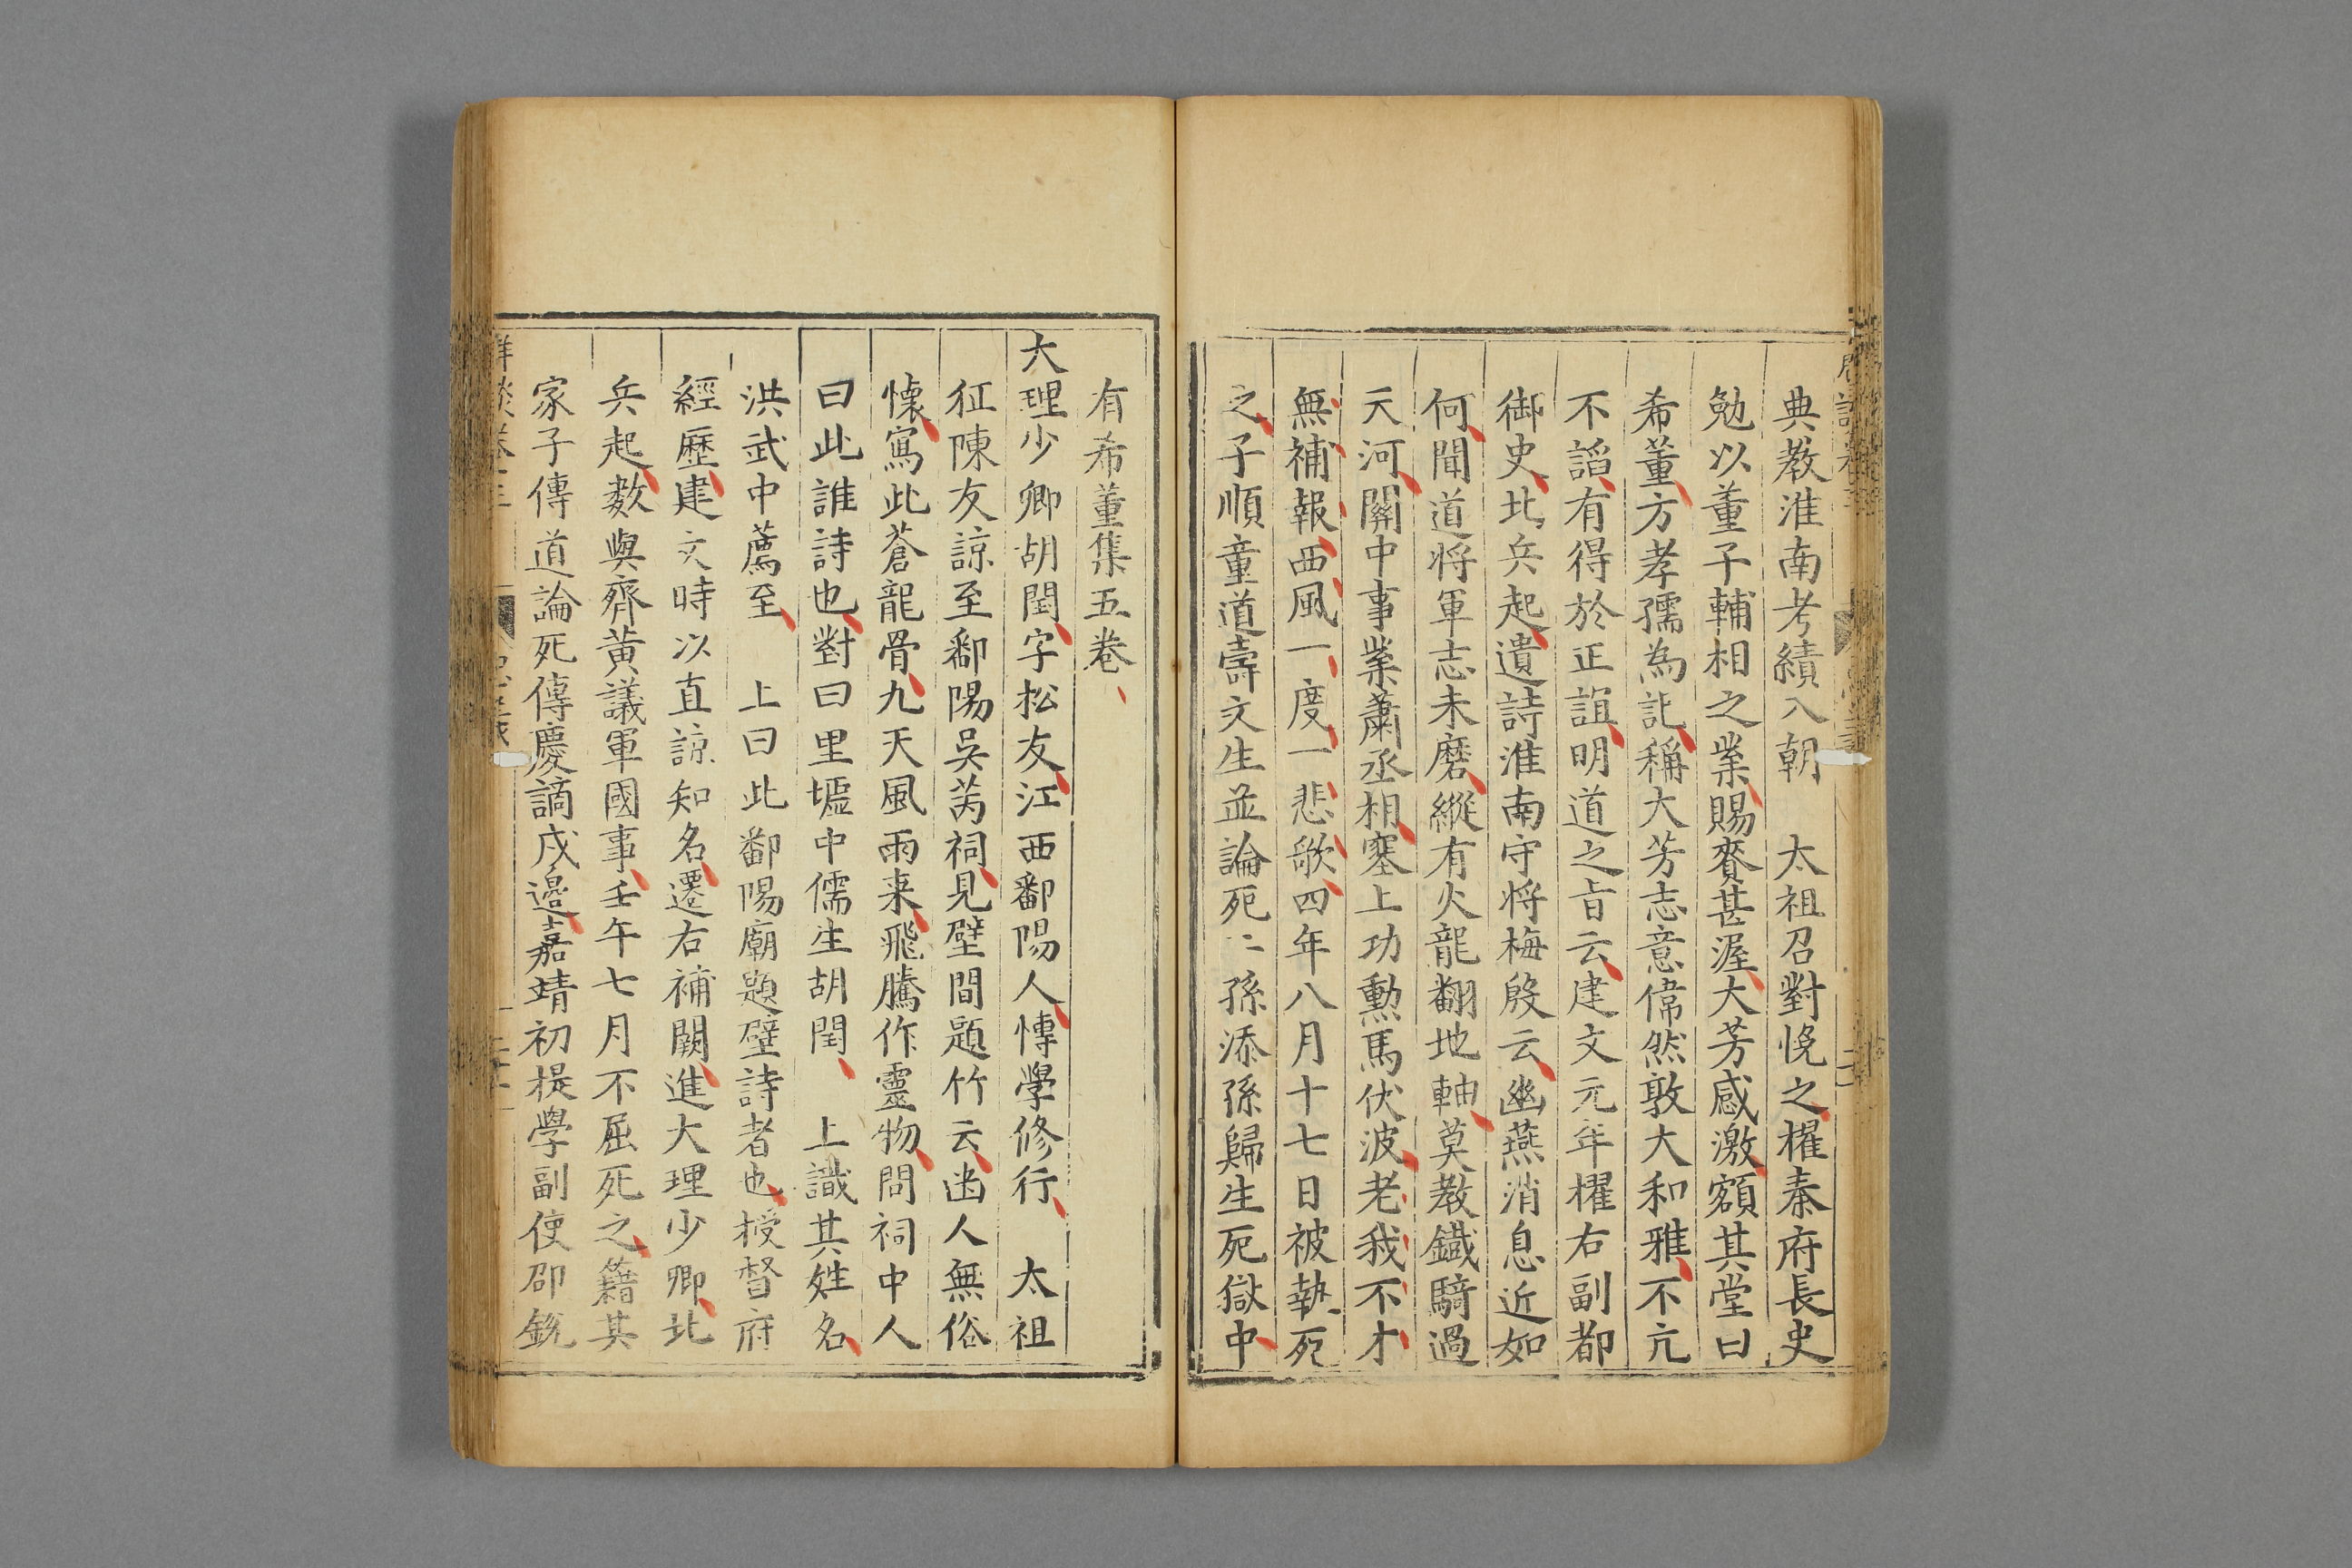 典教淮南考績入朝　太祖召對悅之擢秦府長史
勉以董子輔相之業賜賚甚渥大芳感激額其堂曰
希董方孝孺為記稱大芳志意偉然敦大和雅不亢
不謟有得於正誼明道之旨云建文元年擢右副都
御史北兵起遺詩淮南守将梅殷云幽燕消息近如
何聞道将軍志未磨縱有火龍翻地軸莫教鐡騎過
天河關中事業蕭丞相塞上功勲馬伏波老我不才
無補報西風一度一悲歌四年八月十七日被執死
之子順童道壽文生並論死二孫添孫歸生死獄中
有希董集五卷
大理少卿胡閏字松友江西鄱陽人愽學修行　太祖
征陳友諒至鄱陽吳芮祠見壁間題竹云幽人無俗
懐寫此蒼龍骨九天風雨来飛騰作靈物問祠中人
曰此誰詩也對曰里墟中儒生胡閏　上識其姓名
洪武中薦至　上曰此鄱陽廟題壁詩者也授督府
經歷建文時以直諒知名遷右補闕進大理少卿北
兵起數與齊黃議軍國事壬午七月不屈死之籍其
家子傳道論死傳慶謫戍邉嘉靖初提學副使邵銳